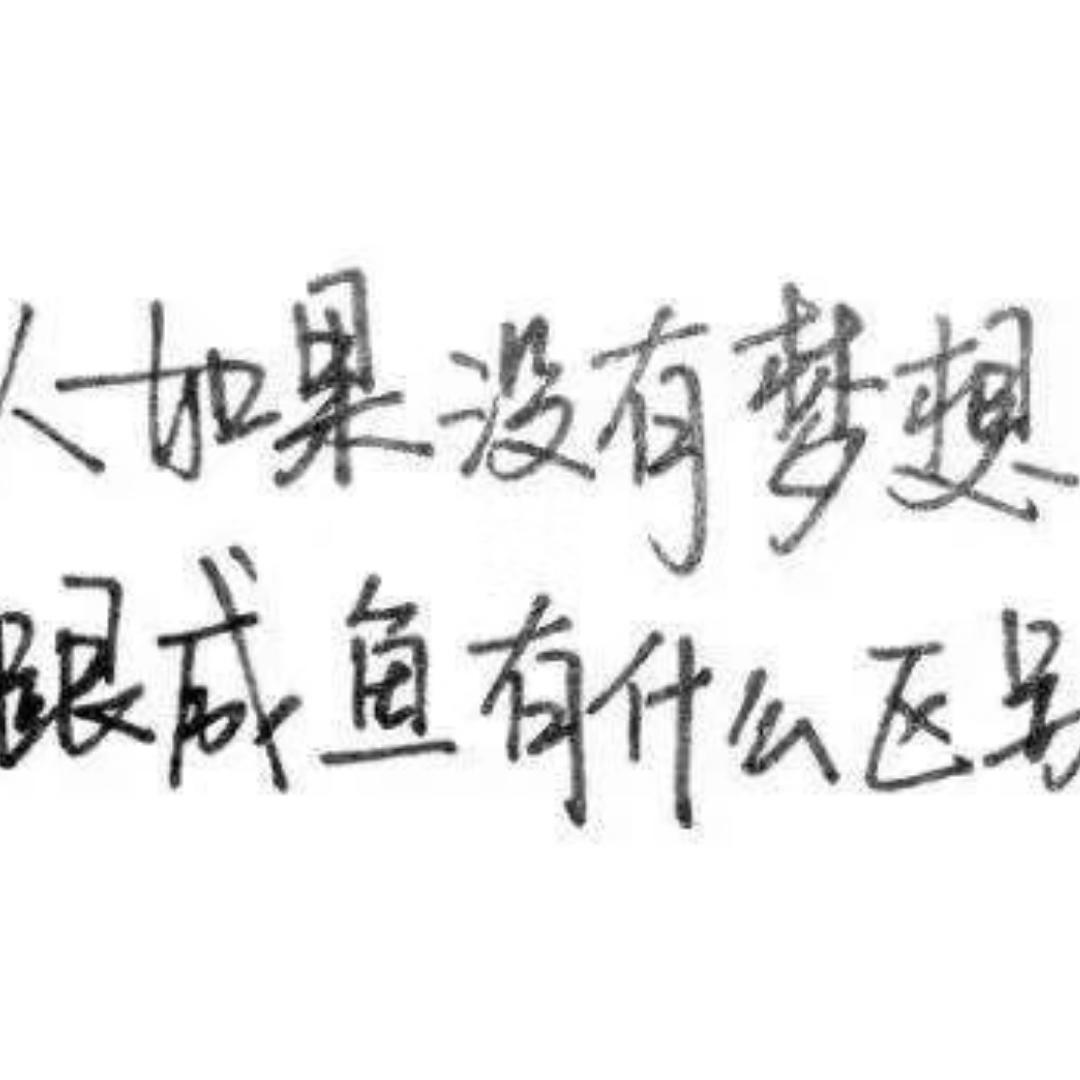 人如果没有梦想
跟咸鱼有什么区别